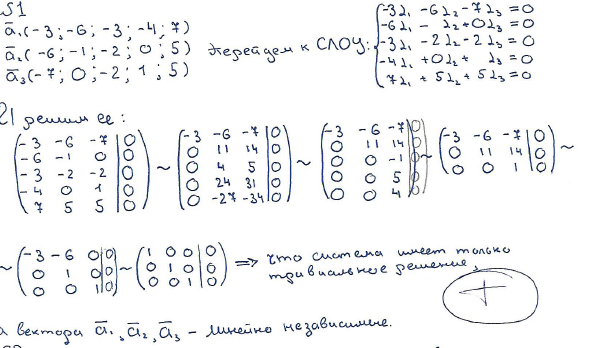 §1
ā₁(-3; -6; -3; -4; 7)
ā₂(-6; -1; -2; 0; 5) перейдем к СЛОУ:
ā₃(-7; 0; -2; 1; 5)
{-3λ₁ -6λ₂ -7λ₃ = 0
-6λ₁ - λ₂ + 0λ₃ = 0
-3λ₁ - 2λ₂ - 2λ₃ = 0
-4λ₁ + 0λ₂ + λ₃ = 0
7λ₁ + 5λ₂ + 5λ₃ = 0
2) решим ее:
(-3 -6 -7 | 0
-6 -1 0 | 0
-3 -2 -2 | 0
-4 0 1 | 0
7 5 5 | 0) ~
(-3 -6 -7 | 0
0 11 14 | 0
0 4 5 | 0
0 24 31 | 0
0 -27 -34 | 0) ~
(-3 -6 -7 | 0
0 11 14 | 0
0 0 -1 | 0
0 0 5 | 0
0 0 4 | 0) ~
(-3 -6 -7 | 0
0 11 14 | 0
0 0 1 | 0) ~
~ (-3 -6 0 | 0
0 1 0 | 0
0 0 1 | 0) ~
(1 0 0 | 0
0 1 0 | 0
0 0 1 | 0) => что система имеет только
тривиальное решение,
+
а вектора ā₁, ā₂, ā₃ - линейно независимые.